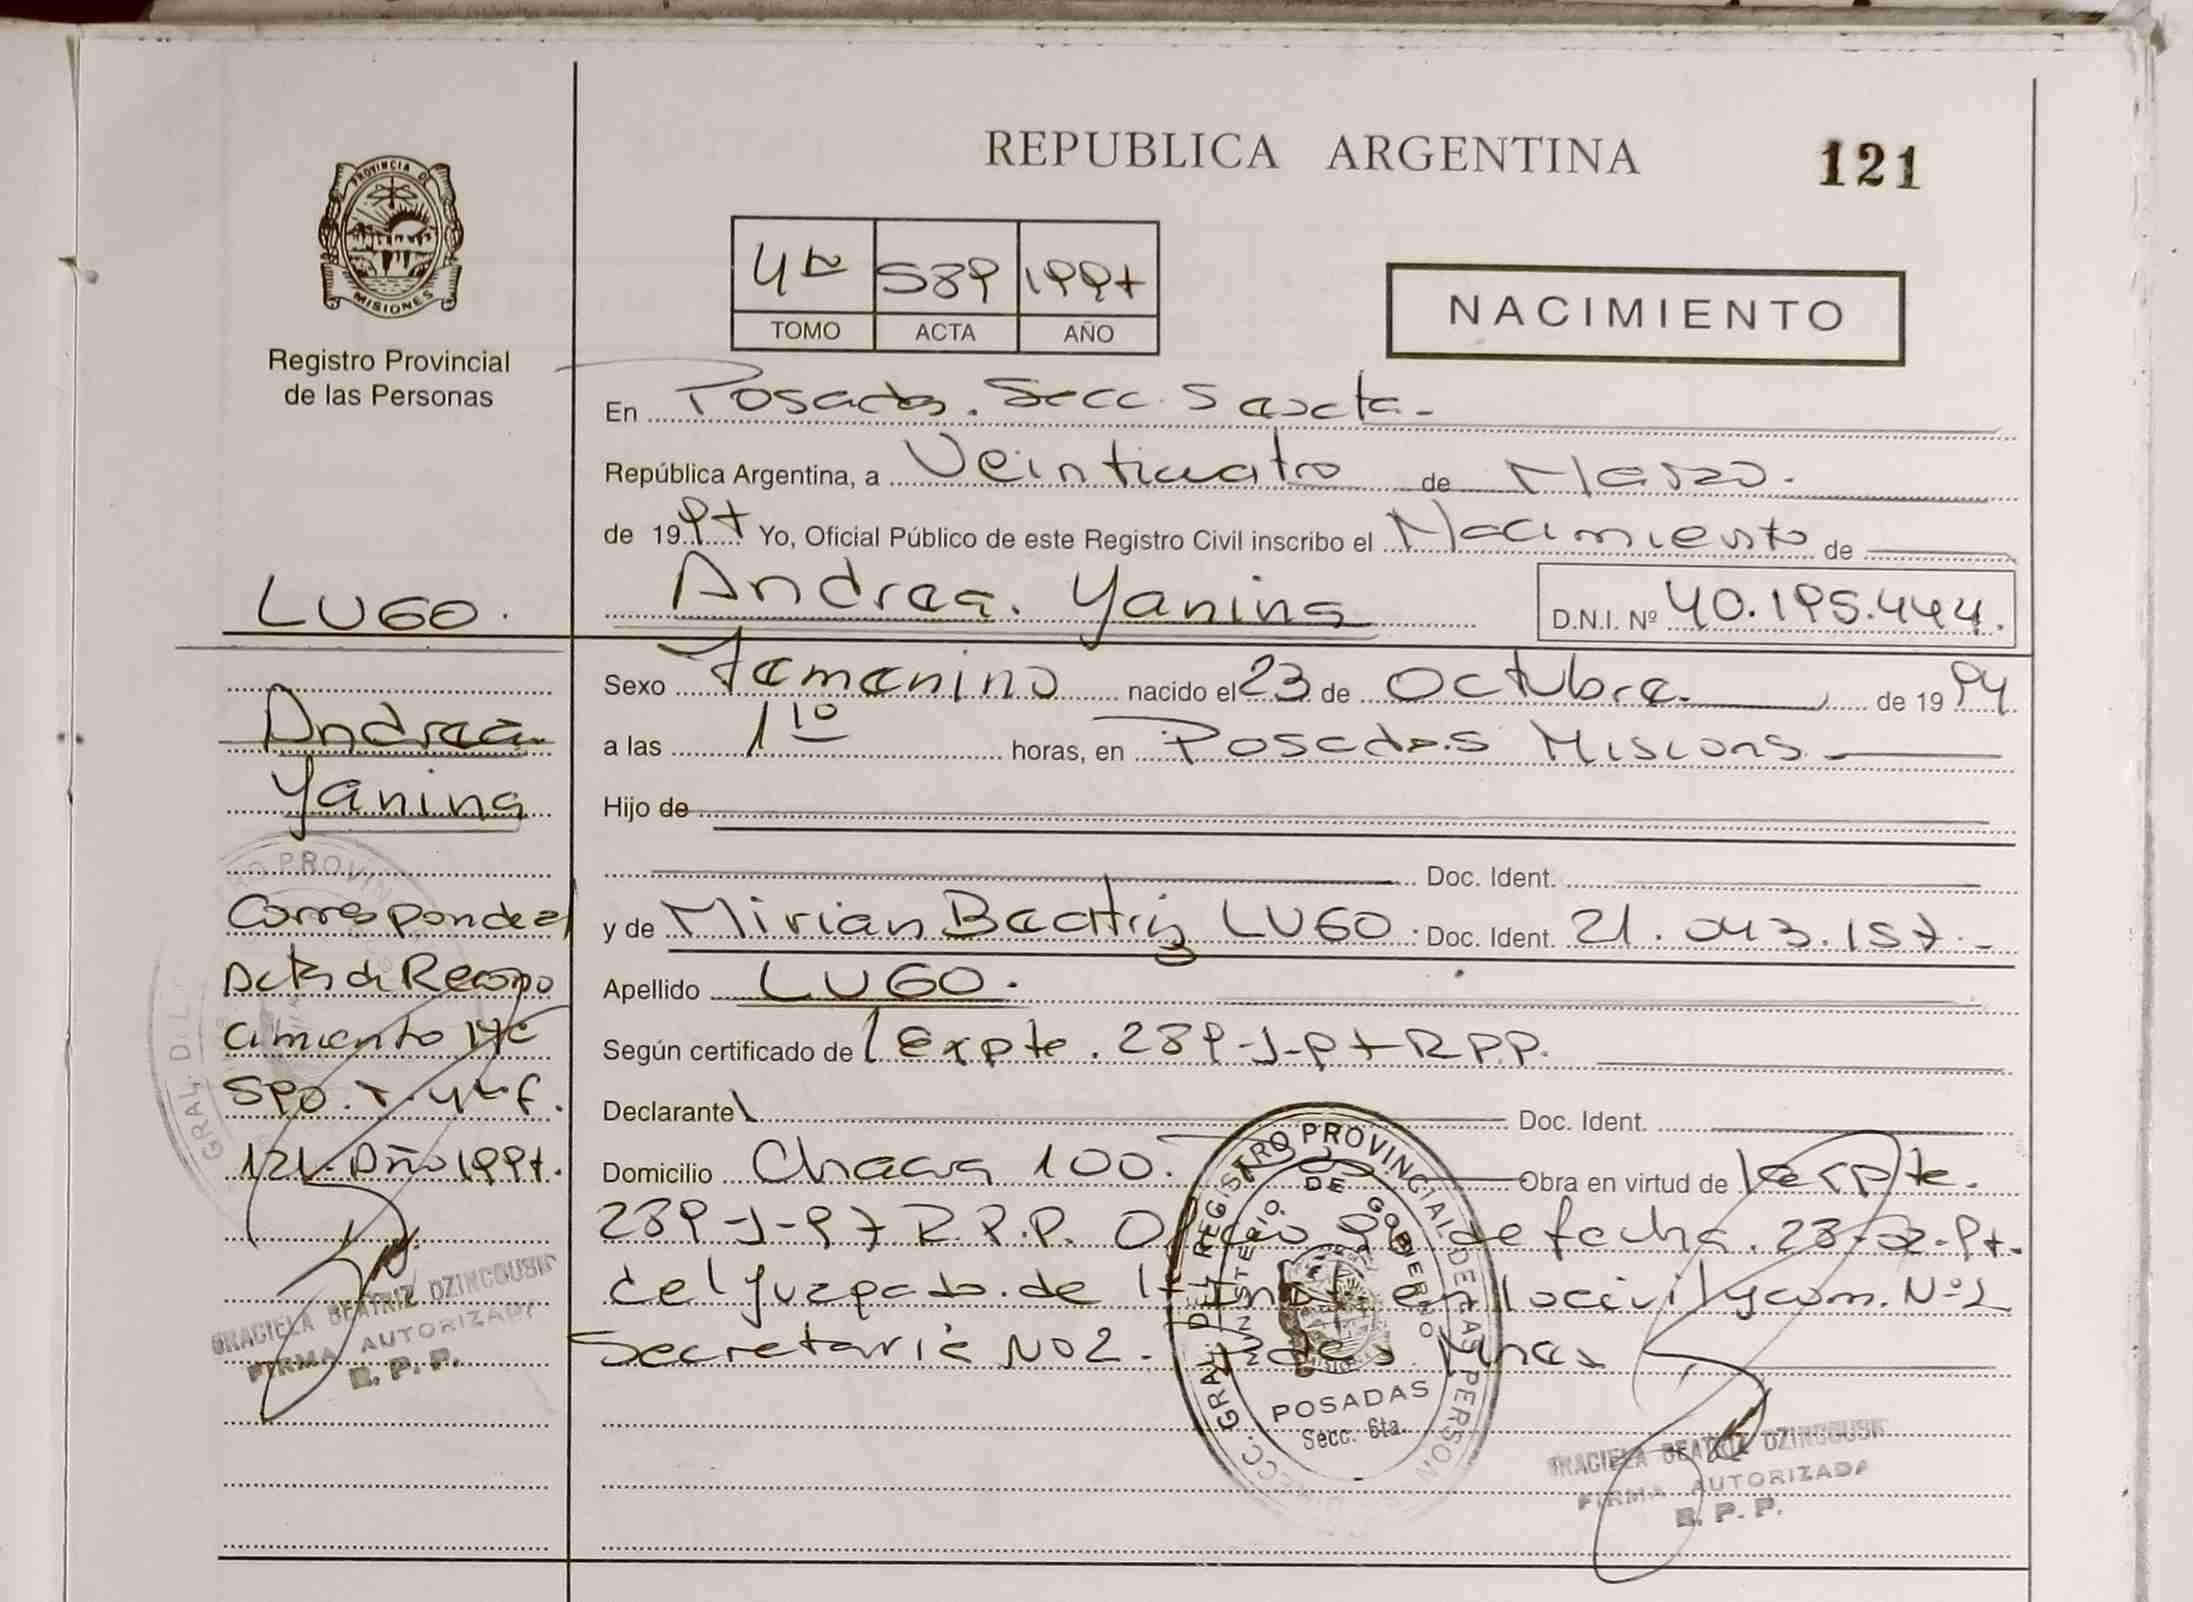 PROVINCIA DE
MISIONES
Registro Provincial
de las Personas
REPUBLICA ARGENTINA 121
4to 589 1997
TOMO ACTA AÑO
NACIMIENTO
En Posadas. Secc. Sexta.
República Argentina, a Veinticuatro de Marzo.
de 1997 Yo, Oficial Público de este Registro Civil inscribo el Nacimiento de
Andrea. Yanina D.N.I. Nº 40.195.444.
Sexo Femenino nacido el 23 de Octubre de 1994
a las 110 horas, en Posadas Misiones
Hijo de
Doc. Ident.
y de Mirian Beatriz LUGO. Doc. Ident. 21.043.157.-
Apellido LUGO.
Según certificado de Expte. 289-J-97 R.P.P.
Declarante Doc. Ident.
Domicilio Chacra 100. Obra en virtud de Expte.
289-J-97 R.P.P. Oficio de fecha. 28-2-97.
del Juzgado. de 1º Inst. en lo civil y com. Nº 2
Secretaria Nº 2.
LUGO.
Andrea
Yanina
Corresponde al
Acta de Recono
cimiento Nº
590. T. 4to f.
121. Año 1997.
GRACIELA BEATRIZ DZINCOUSKI
FIRMA AUTORIZADA
R. P. P.
DIRECC. GRAL. DEL REGISTRO PROVINCIAL DE LAS PERSONAS
MINISTERIO DE GOBIERNO
POSADAS
Secc. 6ta.
GRACIELA BEATRIZ DZINCOUSKI
FIRMA AUTORIZADA
R. P. P.